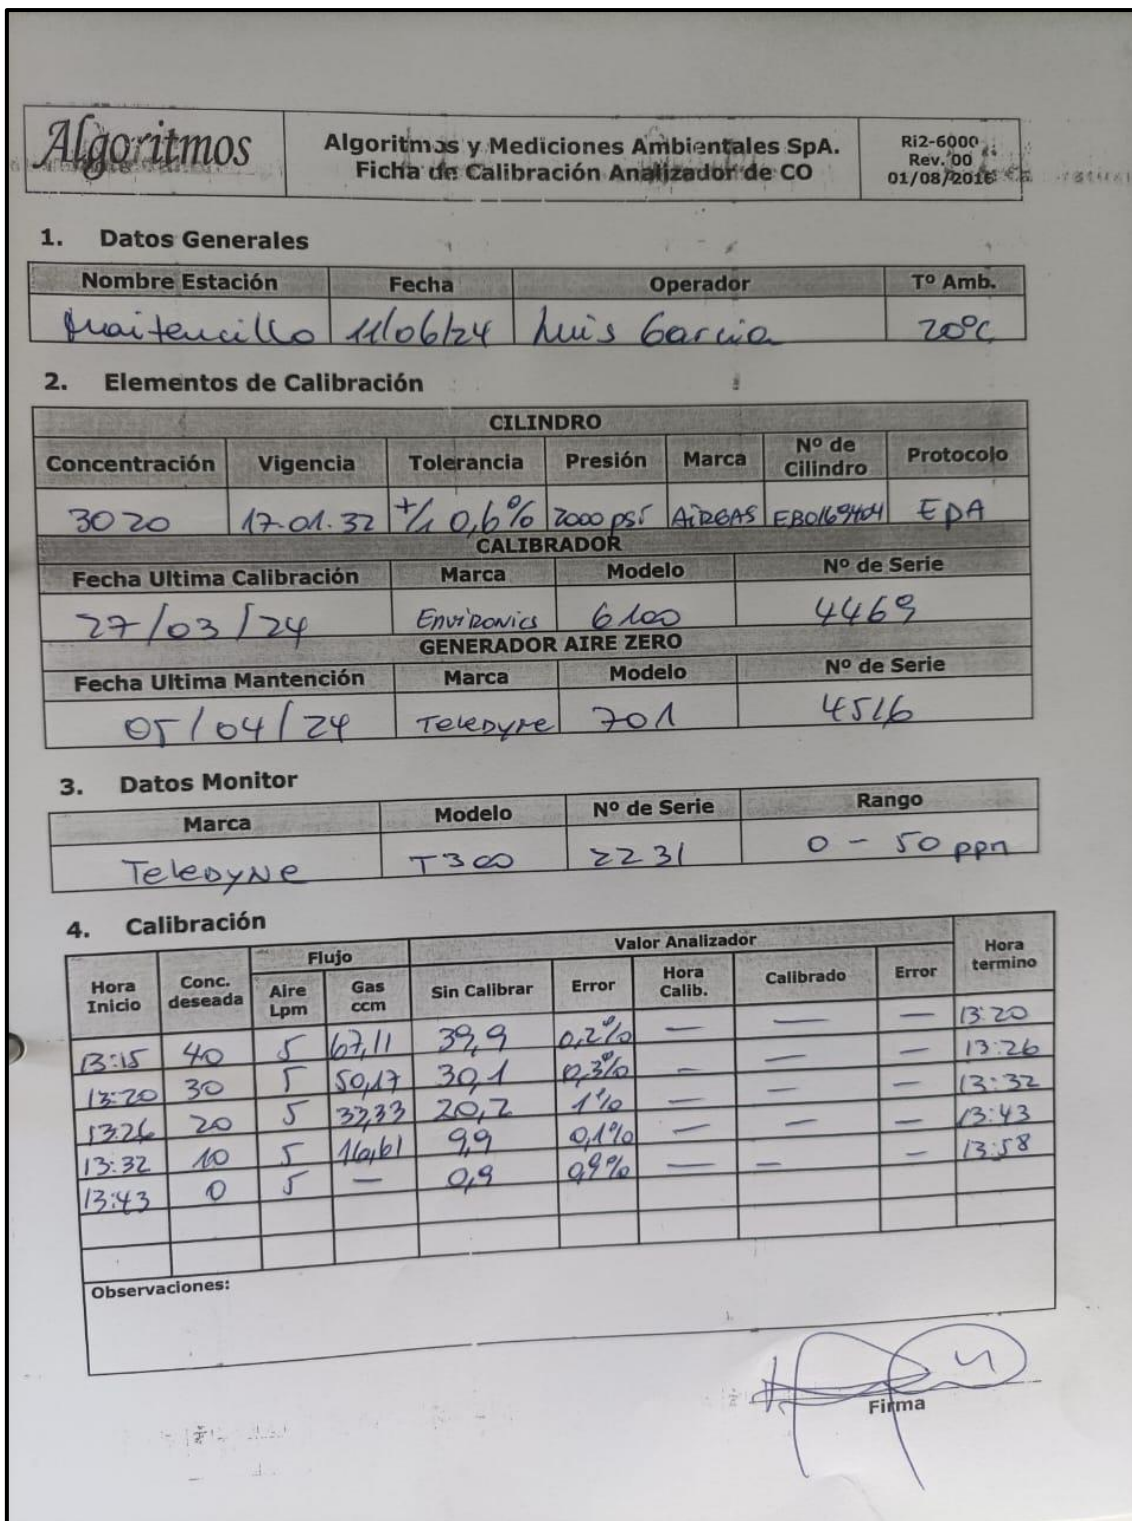 Algoritmos
Algoritmos y Mediciones Ambientales SpA.
Ficha de Calibración Analizador de CO
Ri2-6000
Rev. 00
01/08/2016
1. Datos Generales
Nombre Estación Fecha Operador Tº Amb.
Huaitencillo 11/06/24 Luis Garcia 20ºC
2. Elementos de Calibración
CILINDRO
Concentración Vigencia Tolerancia Presión Marca Nº de Cilindro Protocolo
3020 17-01-32 +/- 0,6% 2000 psi AiRGAS EB0169404 EPA
CALIBRADOR
Fecha Ultima Calibración Marca Modelo Nº de Serie
27/03/24 Environics 6100 4469
GENERADOR AIRE ZERO
Fecha Ultima Mantención Marca Modelo Nº de Serie
05/04/24 Teledyne 701 4516
3. Datos Monitor
Marca Modelo Nº de Serie Rango
Teledyne T300 2231 0 - 50 ppm
4. Calibración
Flujo Valor Analizador
Hora Inicio Conc. deseada Aire Lpm Gas ccm Sin Calibrar Error Hora Calib. Calibrado Error Hora termino
13:15 40 5 67,11 39,9 0,2% — — — 13:20
13:20 30 5 50,17 30,1 0,3% — — — 13:26
13:26 20 5 33,33 20,2 1% — — — 13:32
13:32 10 5 16,61 9,9 0,1% — — — 13:43
13:43 0 5 — 0,9 0,9% — — — 13:58
Observaciones:
Firma